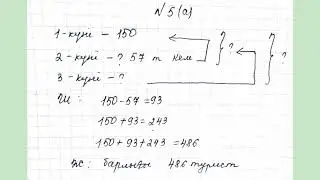 №5 (а)
1-күні – 150
2-күні – ? 57 т кем
?
3-күні – ?
Ш: 150-57=93
150+93=243
150+93+243=486
Ж: барлығы 486 турист